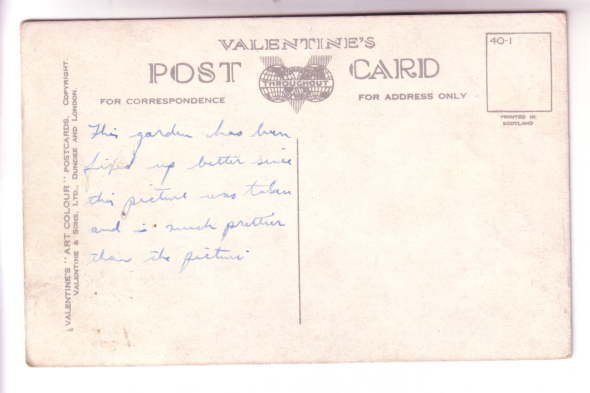 VALENTINE'S
POST CARD
THROUGHOUT
FOR CORRESPONDENCE
FOR ADDRESS ONLY
40-1
PRINTED IN
SCOTLAND
VALENTINE'S "ART COLOUR" POSTCARDS. COPYRIGHT.
VALENTINE & SONS, LTD., DUNDEE AND LONDON.
This garden has been
fixed up better since
this picture was taken
and is much prettier
than the picture